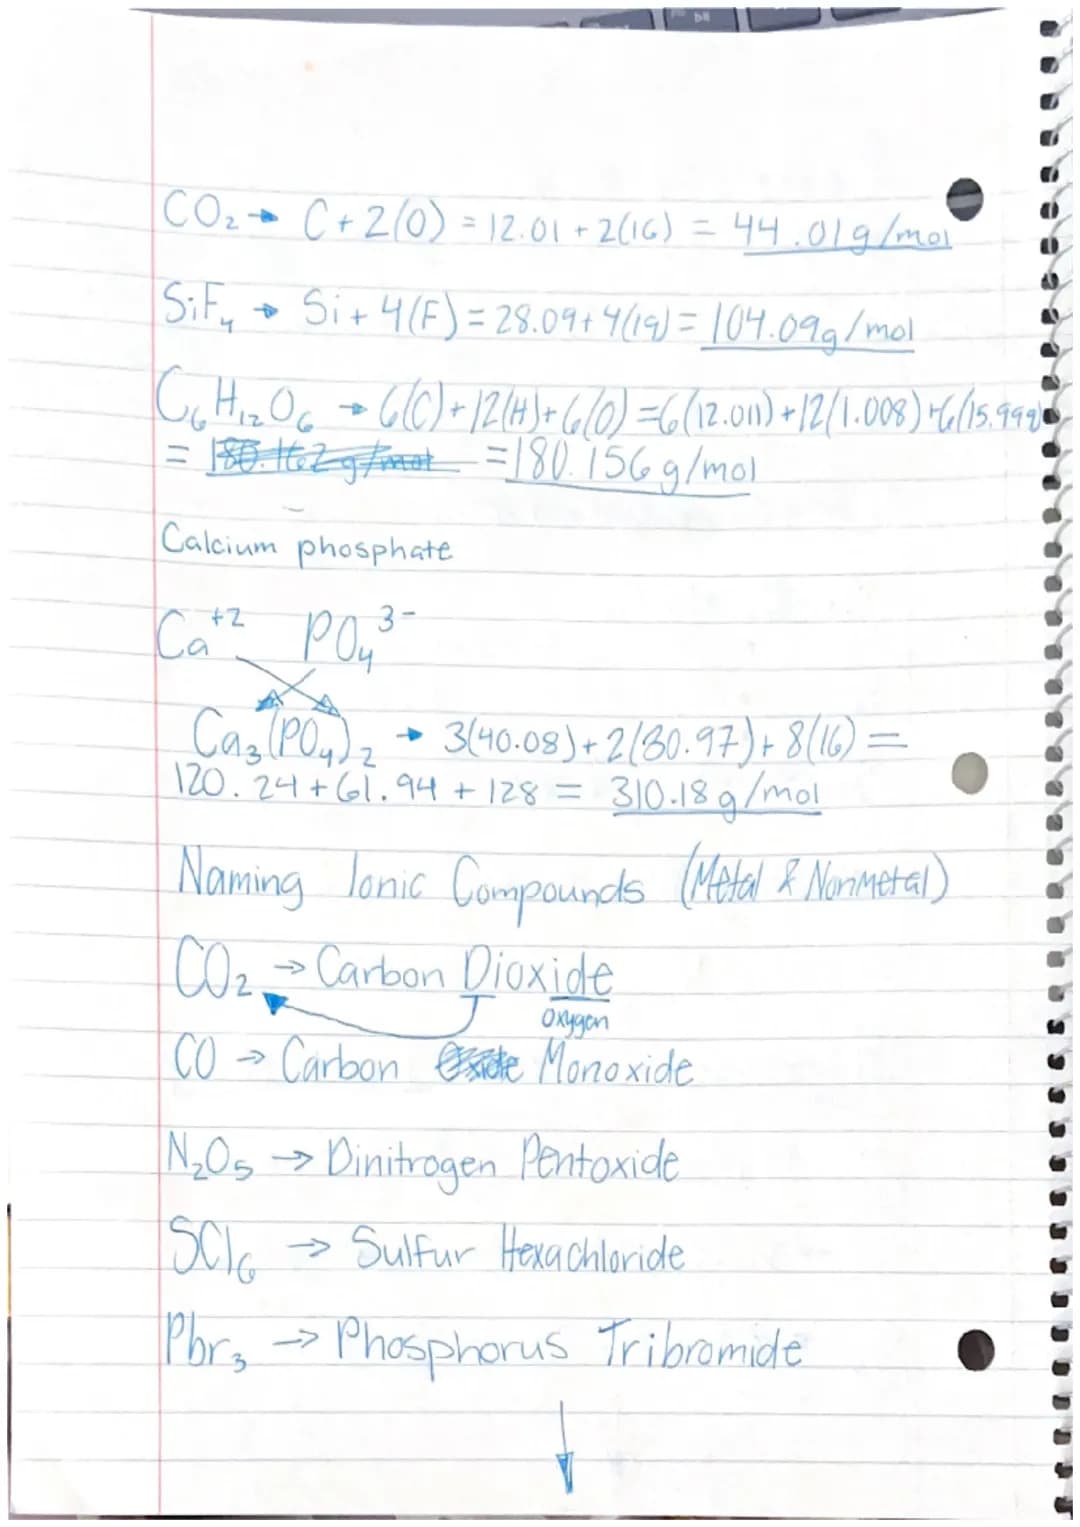 CO₂ → C + 2(O) = 12.01 + 2(16) = 44.01g/mol
SiF₄ → Si + 4(F) = 28.09 + 4(19) = 104.09g/mol
C₆H₁₂O₆ → 6(C) + 12(H) + 6(O) = 6(12.011) + 12(1.008) + 6(15.999)
= 180.162 g/mol = 180.156 g/mol
Calcium phosphate
Ca⁺² PO₄³⁻
Ca₃(PO₄)₂ → 3(40.08) + 2(30.97) + 8(16) =
120.24 + 61.94 + 128 = 310.18 g/mol
Naming Ionic Compounds (Metal & NonMetal)
CO₂ → Carbon Dioxide
oxygen
CO → Carbon Monoxide
N₂O₅ → Dinitrogen Pentoxide
SCl₆ → Sulfur Hexachloride
Pbr₃ → Phosphorus Tribromide